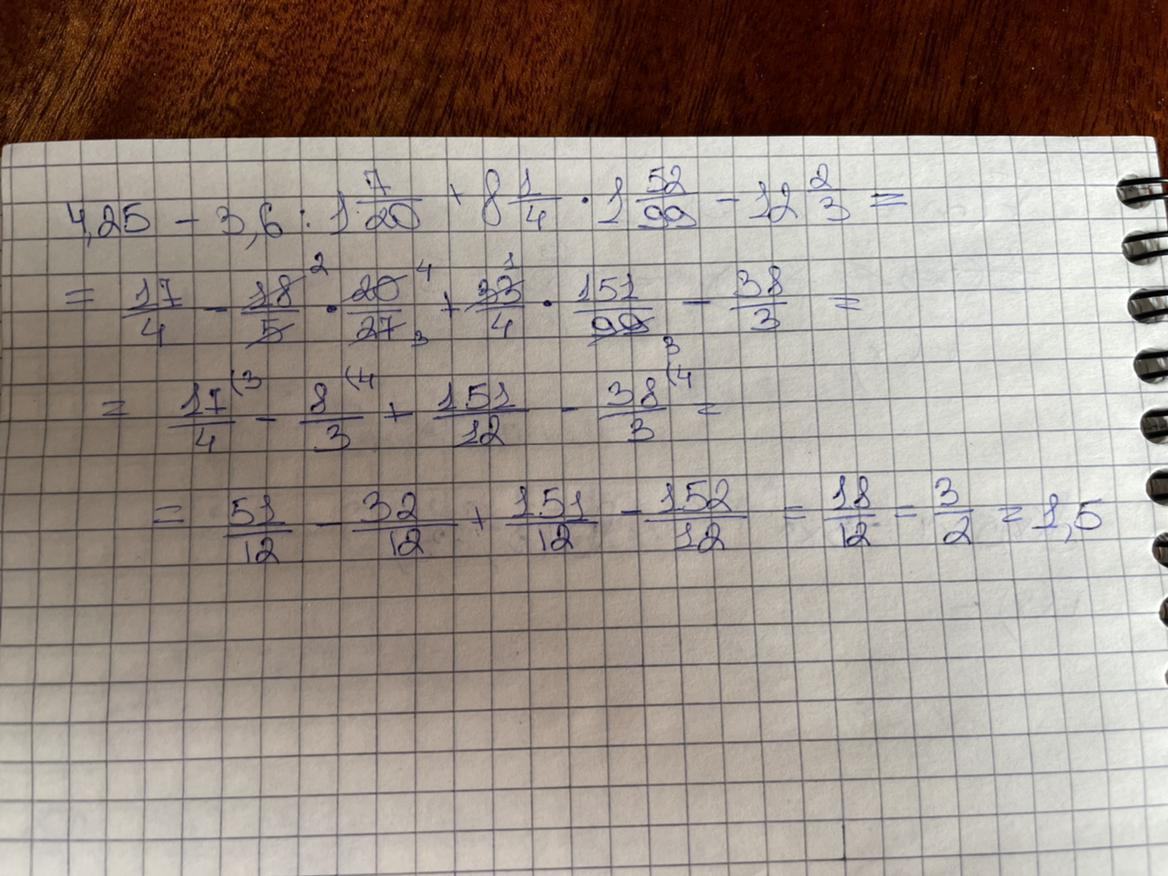 4,25 - 3,6 : 1 7/20 + 8 1/4 · 1 52/99 - 12 2/3 =
= 17/4 - 18/5 2 · 20/27 4 3 + 33/4 1 · 151/99 3 - 38/3 =
= 17/4 (3 - 8/3 (4 + 151/12 - 38/3 (4 =
= 51/12 - 32/12 + 151/12 - 152/12 = 18/12 = 3/2 = 1,5